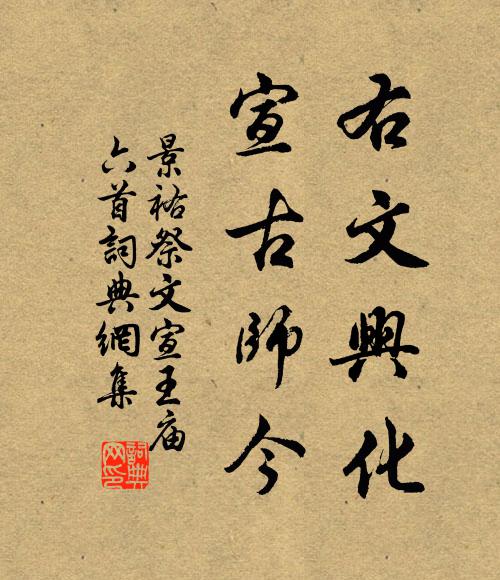 右文興化
宣古師今
景祐祭文宣王庙
六首詞典網集
詞典网印